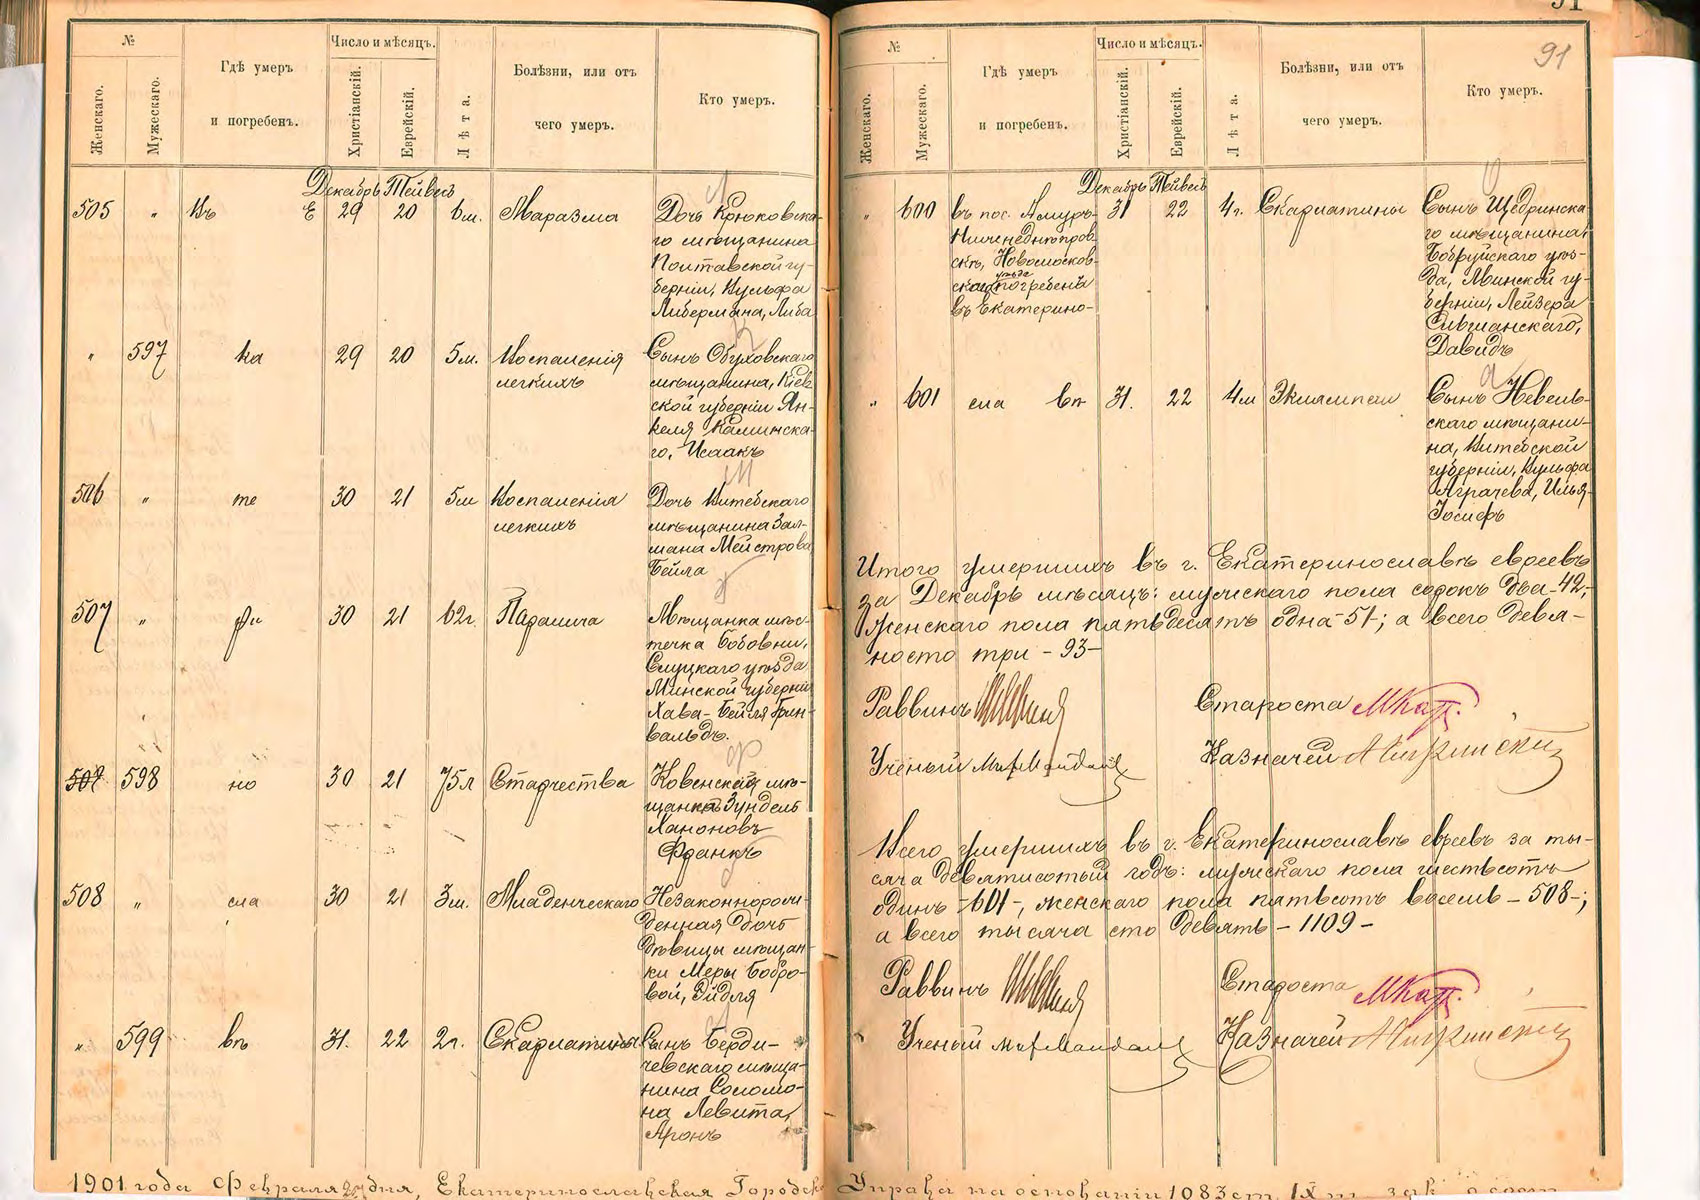 №
Женскаго.
Мужескаго.
Гдѣ умеръ
и погребенъ.
Число и мѣсяцъ.
Христіанскій.
Еврейскій.
Лѣта.
Болѣзни, или отъ
чего умеръ.
Кто умеръ.
Декабрь Тейвесъ
505 " Въ Е 29 20 6 м. Маразма
Дочь Крюковска-
го мѣщанина
Полтавской гу-
берніи, Вульфа
Либермана, Либа
" 597 ка 29 20 5 м. Воспаленія
легкихъ
Сынъ Обуховскаго
мѣщанина, Кіев
ской губерніи Ян-
келя Каминска-
го, Исаакъ
506 " те 30 21 5 м Воспаленія
легкихъ
Дочь Витебскаго
мѣщанина Зал-
мана Мейстрова
Бейла
507 " ри 30 21 62 г. Паралича
Мѣщанка мѣс-
течка Бобовни,
Слуцкаго уѣзда
Минской губерніи
Хава-Бейля Грин-
вальдъ.
507 598 но 30 21 75 л Старчества
Ковенскій мѣ-
щанинъ Зундель
Ханоновъ
Франкъ
508 " сла 30 21 3 м. Младенческаго
Незаконнорож-
денная дочь
дѣвицы мѣщан-
ки Меры Бобро-
вой, Эйдля
" 599 вѣ 31. 22 2 г. Скарлатины
Сынъ Берди-
чевскаго мѣща-
нина Соломо-
на Левита,
Аронъ
1901 года Февраля дня, Екатеринославская Городск
91
№
Женскаго.
Мужескаго.
Гдѣ умеръ
и погребенъ.
Число и мѣсяцъ.
Христіанскій.
Еврейскій.
Лѣта.
Болѣзни, или отъ
чего умеръ.
Кто умеръ.
91
Декабрь Тейвесъ
" 600 въ пос. Амуръ- 31 22 4 г. Скарлатины
Нижнеднѣпров
скъ, Новомосков-
скаго уѣзда погребенъ
въ Екатерино-
Сынъ Щедринска-
го мѣщанина,
Бобруйскаго уѣз-
да, Минской гу-
берніи, Лейзера
Сившанскаго,
Давидъ
" 601 сла вѣ 31. 22 4 м Эклямпсіи
Сынъ Невель-
скаго мѣщани-
на, Витебской
губерніи, Вульфа
Аграчева, Илья-
Іосифъ
Итого умершихъ въ г. Екатеринославѣ евреевъ
за Декабрь мѣсяцъ: мужскаго пола сорокъ два -42-,
Женскаго пола пятьдесятъ одна -51-; а всего девя-
носто три - 93-
Раввинъ Староста МКац.
Ученый Казначей
Всего умершихъ въ г. Екатеринославѣ евреевъ за ты-
сяча девятисотый годъ: мужскаго пола шестьсотъ
одинъ -601-, женскаго пола пятьсотъ восемь - 508-;
а всего тысяча сто девять - 1109 -
Раввинъ Староста МКац.
Ученый Казначей
Управа на основаніи 1083 ст. IX т. зак. о сост.